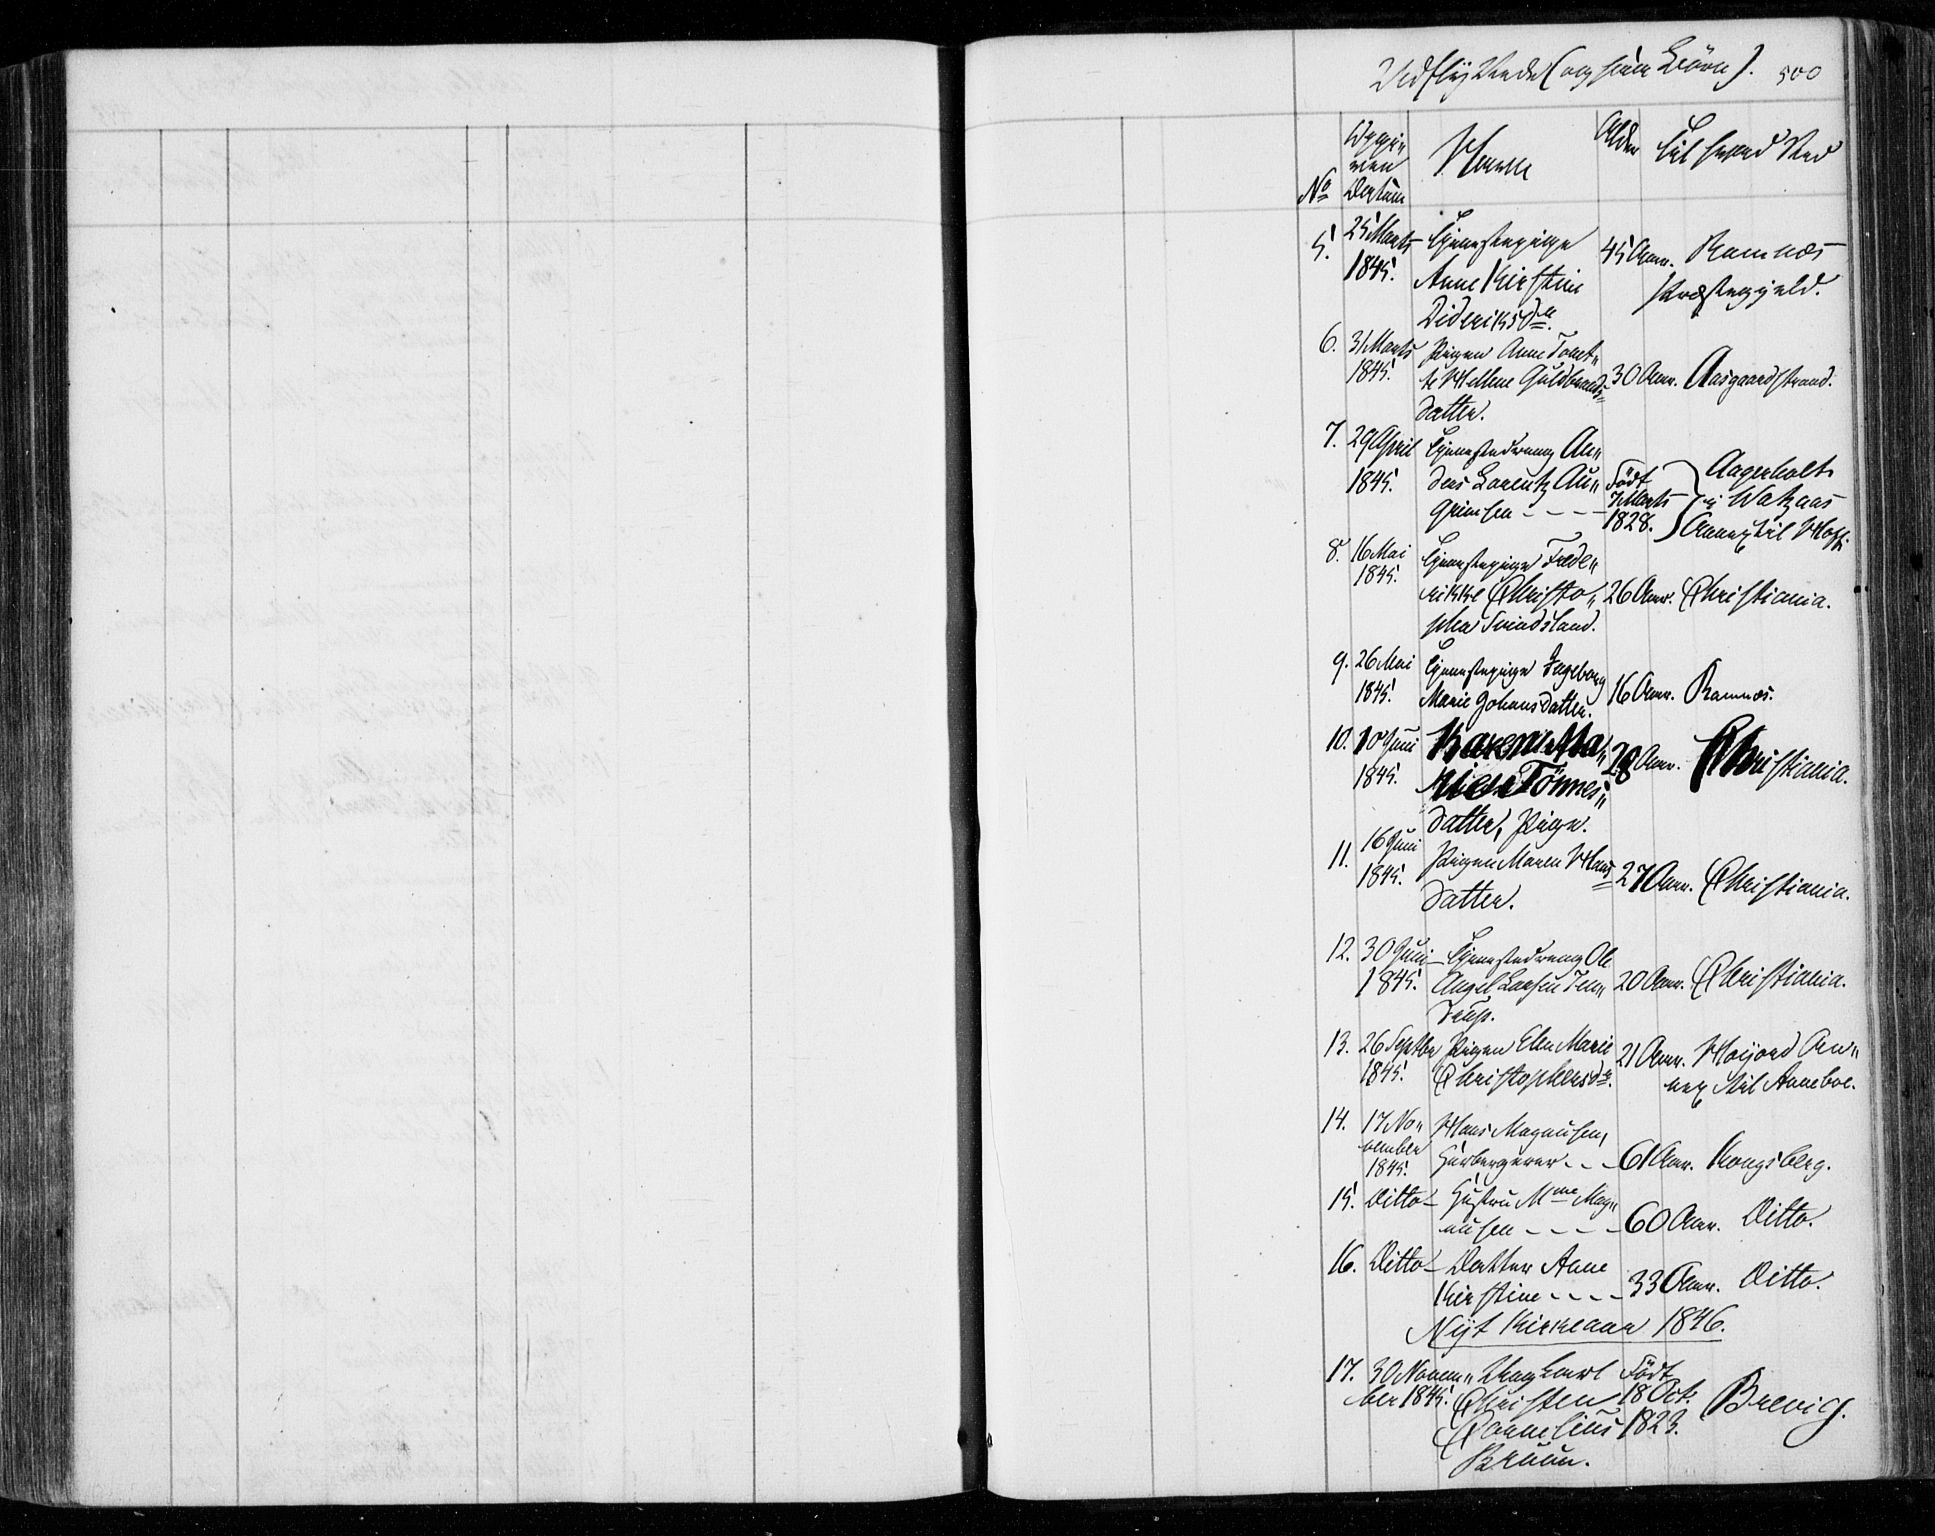 Udflyttede 500
No
Navn
Alder
Til hvad Sted
5. 25 Marts 1845. Tjenestepige Anne Kirstine Dideriksdr. 45 Aar. Ramnæs Præstegjeld.
6. 31 Marts 1845. Pigen Anne Tonette Hellene Guldbrands-datter. 30 Aar. Aasgaardstrand.
7. 29 April 1845. Tjenestedreng Anders Laurentz Født 7 Marts 1828. i Annex til
8. 16 Mai 1845. Tjenestepige Frederikke Christopha Svindsland. 26 Aar. Christiania.
9. 26 Mai 1845. Tjenestepige Ingeborg Marie Johansdatter. 16 Aar. Ramnæs.
10. 10 Juni 1845. Karen Marie Tønnes-datter, Pige. 28 Aar. Christiania.
11. 16 Juni 1845. Pigen Maren Hans-datter. 27 Aar. Christiania.
12. 30 Juni 1845. Tjenestedreng Ole Larsen 20 Aar. Christiania.
13. 26 Septbr 1845. Pigen Elen Marie Christophersdr. 21 Aar. Høijord Annex til Anneboe.
14. 17 November 1845. Hans Magnusen, 61 Aar. Kongsberg.
15. Ditto Hustru Mme Magnusen 60 Aar. Ditto.
16. Ditto Datter Anne Kirstine 33 Aar. Ditto.
Nyt Kirkeaar 1846.
17. 30 November 1845. Ungkarl Christen Cornelius Bruun. Født 18 Oct. 1823. Brevig.